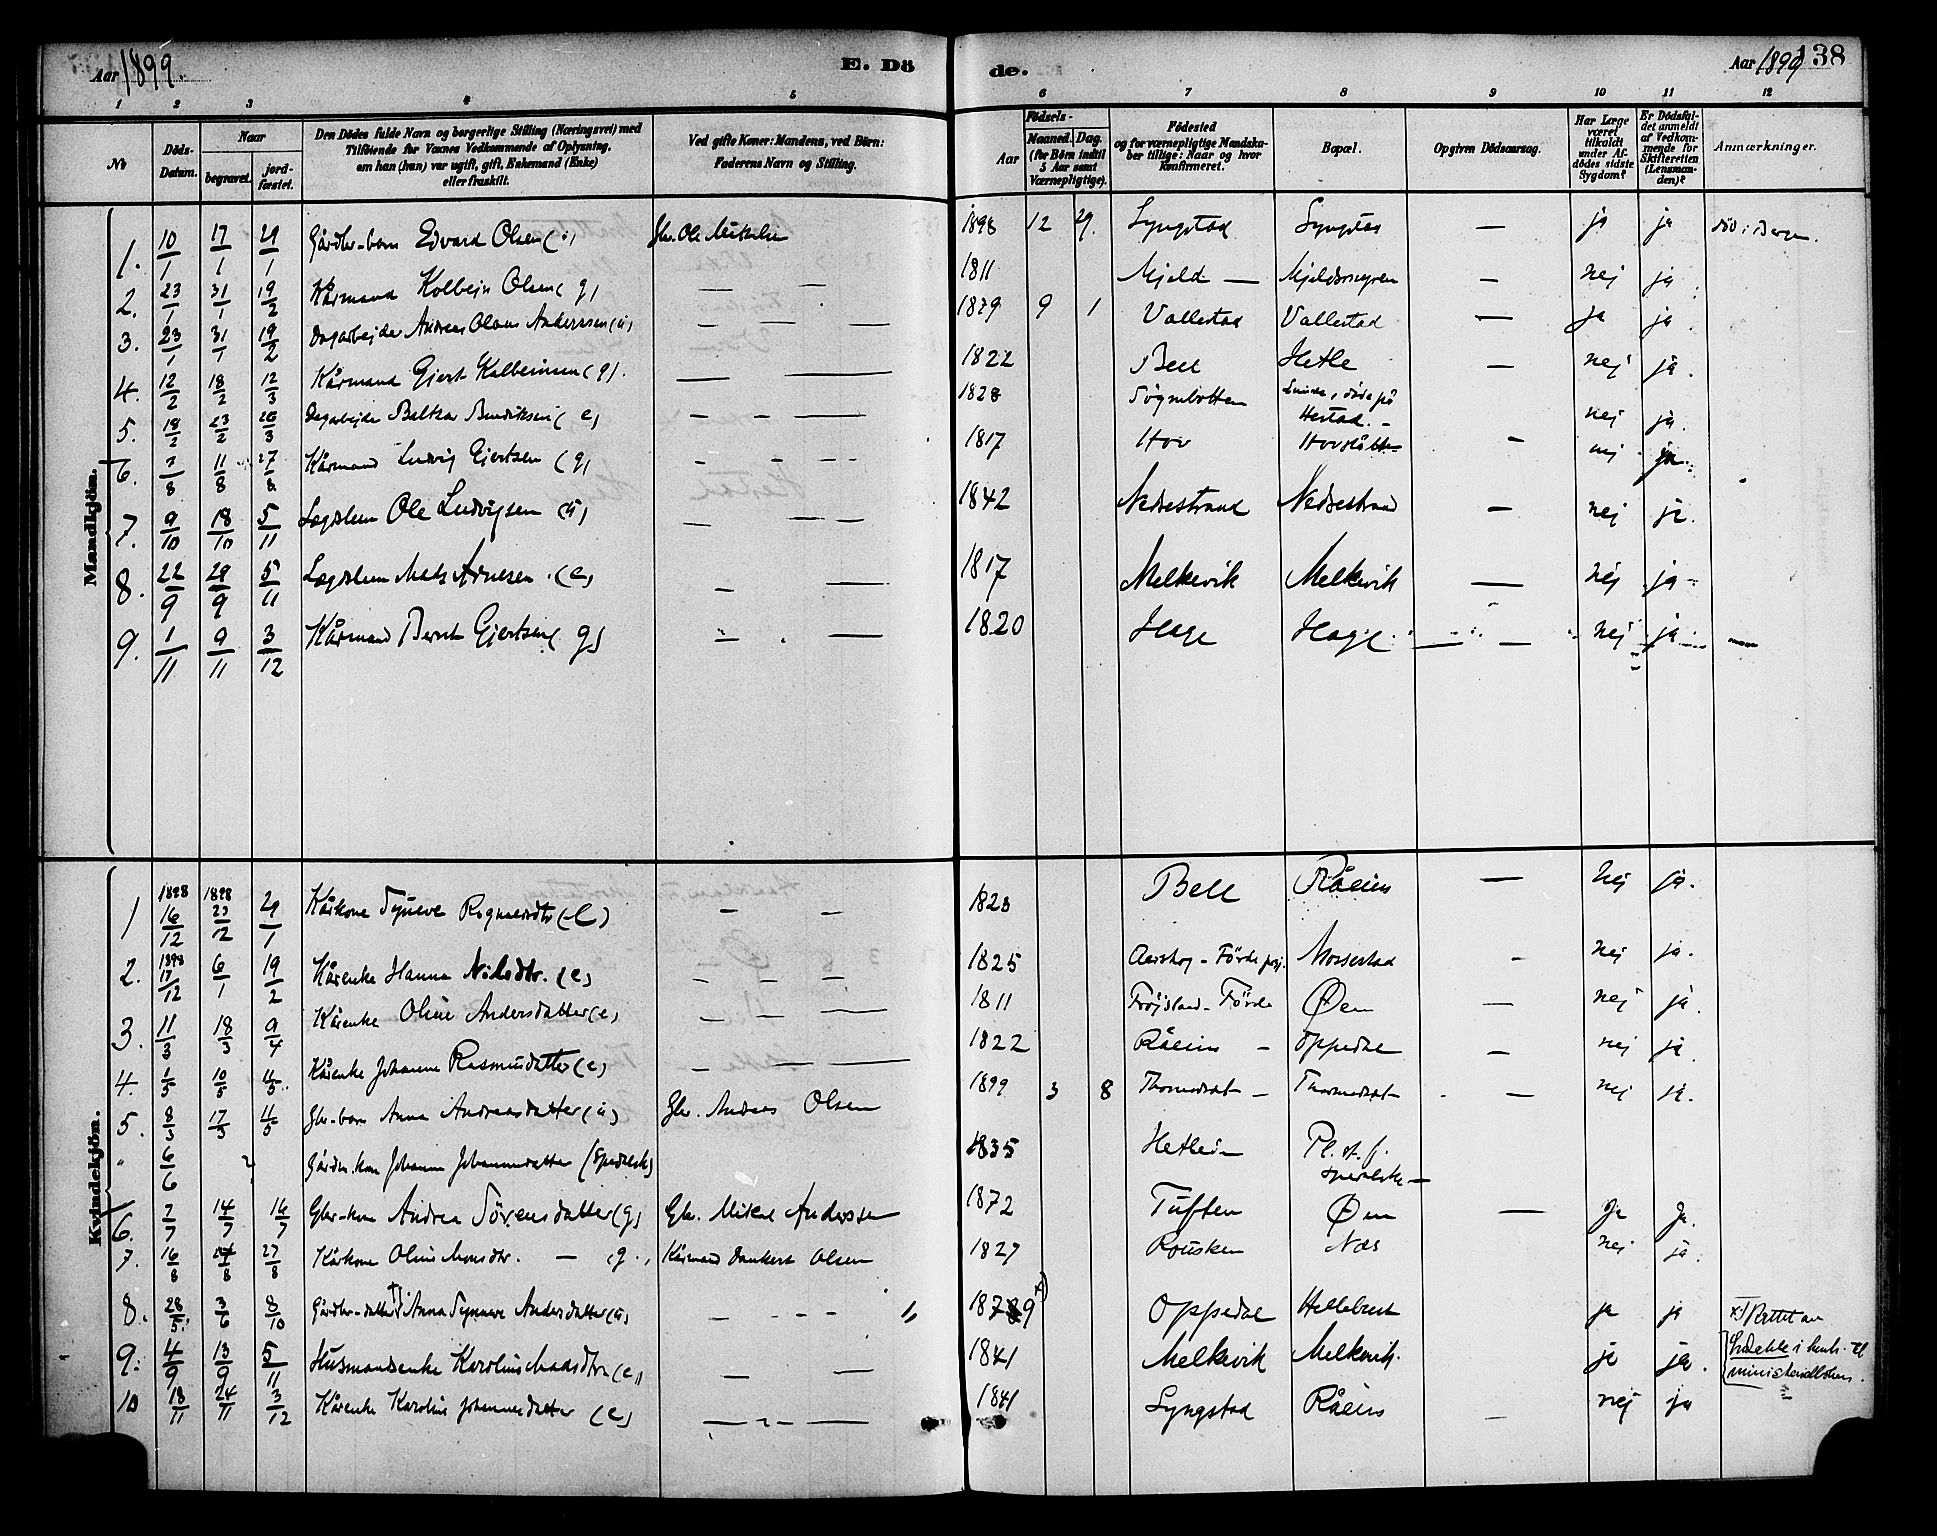 Aar 1899. E. Dö de. Aar 1899 138
1 2 3 4 5 6 7 8 9 10 11 12
No
Döds-Datum.
Naar
begravet.
jordfæstet.
Den Dödes fulde Navn og borgerlige Stilling (Næringsvei) med
Tilföiende for Voxnes Vedkommende af Oplysning,
om han (hun) var ugift, gift, Enkemand (Enke)
eller fraskilt.
Ved gifte Koner: Mandens, ved Börn:
Faderens Navn og Stilling.
Födsels-
Aar Maaned. Dag.
(for Börn indtil
5 Aar samt
Værnepligtige).
Födested
og for værnepligtige Mandskaber tillige: Naar og hvor
Konfirmeret.
Bopæl.
Opgiven Dödsaarsag.
Har Læge
været
tilkaldt
under Afdödes sidste
Sygdom?
Er Dödsfaldet anmeldt
af Vedkommende for
Skifteretten
(Lensmanden)?
Anmærkninger.
Mandkjön.
1. 10/1 17/1 29/1 Gårdbr-barn Edvard Olsen (ü) Gbr. Ole Mikkelsen 1898 12 29. Lyngstad Lyngstad — ja ja död i Bergen.
2. 23/1 31/1 19/2 Kårmand Kolbejn Olsen (g) — — 1811 Mjeld — — nej ja
3. 23/1 31/1 19/2 Dagarbejder Andreas Olaus Anderssen (ü) — — — 1879 9 1 Vallestad Vallestad — ja ja
4. 12/2 18/2 12/3 Kårmand Gjert Kolbeinsen (g). — — 1822 Bell Hetle — nej ja.
5. 18/2 23/2 26/3 Dagarbejder Baltzar Bendiksen (e) — — — 1828 Sögnebotten Hestad. — nej ja.
6. 7/8 11/8 27/8 Kårmand Ludvig Gjertsen (g) — — — 1817 Hov — nej ja.
7. 9/10 18/10 5/11 Lægdslem Ole Ludvigsen (ü) — — — 1842 Nedrestrand Nedrestrand — nej ja.
8. 22/9 29/9 5/11 Lægdslem Mads Arnesen. (e) — — 1817 Melkevik Melkevik — nej ja
9. 1/11 9/11 3/12 Kårmand Bernt Gjertsen (g) — — 1820 Hage Hage — — nej ja —
Kvindekjön.
1 1898 16/12 1898 23/12 29/1 Kårkone Synneve Rognaldsdtr (e) — — 1823 Bell Råeim — nej ja.
2. 1898 17/12 6/1 19/2 Kårenke Hanna Nilsdtr. (e) — — 1825 Førde Mossestad — nej ja.
3. 11/3 18/3 9/4 Kårenke Oline Andersdatter (e) — — — 1811 Förde Øen — nej ja.
4. 1/5 10/5 11/5. Kårenke Johanne Rasmusdatter (e) — — 1822 Råeim — Oppedal — nej ja.
5. 8/3 17/3 11/5 Gbr-barn Anna Andreasdatter (ü) Gbr. Andreas Olsen 1899 3 8 — — nej ja.
" 6/6 Gårdm. kone Johanne Johannesdatter (Spedalsk) 1835 Pl. st. f. spedalske —
6. 7/7 14/7 16/7 Gbr-kone Andrea Sörensdatter (g) Gbr. Mikal Anderssen 1872 Tuften Øen — Ja Ja.
7. 16/8 24/8 27/8 Kårkone Oline Monsdtr. — (g., Kårmand Dankert Olsen 1827 Rousken Nes nej ja
8. 28/5. 3/6 8/10 Gårdbr-datter Anna Synneve Andersdatter (ü) — — — " 1879 x) Oppedal Hellebust ja ja x) Rettet av
9. 4/9 13/9 5/11 Husmandsenke Karoline Madsdtr (e) — — 1841 Melkevik Melkevik. ja ja. i henh. til
10 18/11 24/11 3/12 Kårenke Karoline Johannesdatter (e) — — — 1841 Lyngstad Råeim — nej ja ministerialboken.